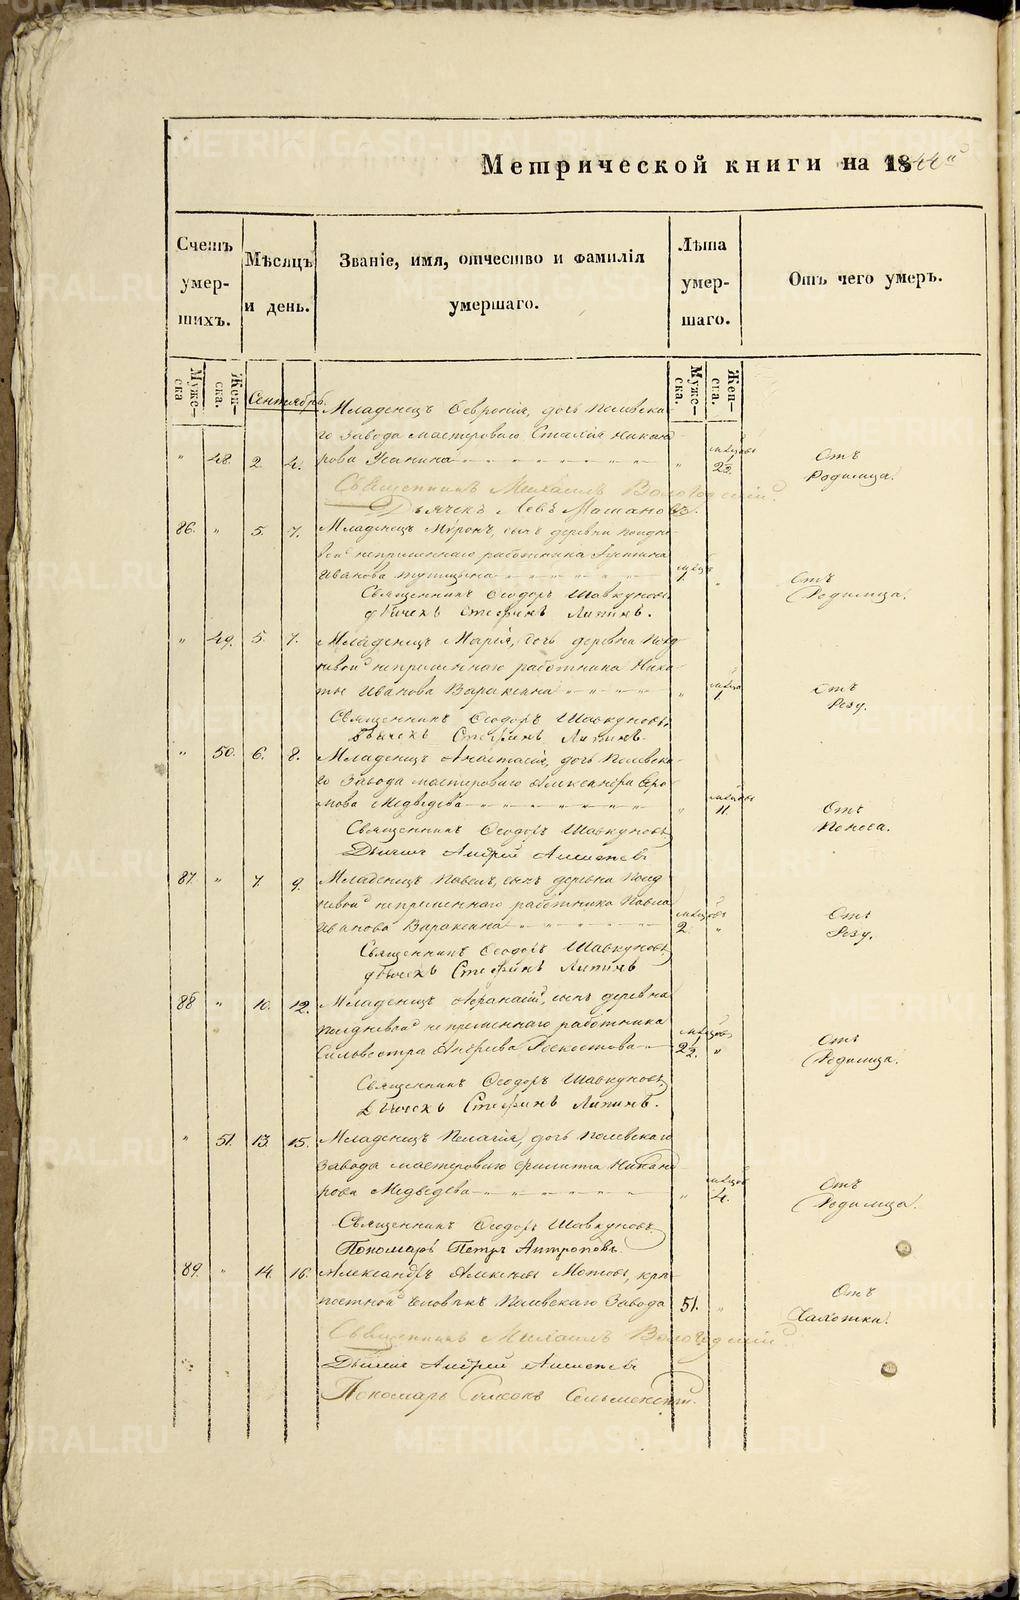 Метрической книги на 1844й
Счетъ умер- шихъ.
Мѣсяцъ и день.
Званіе, имя, отчество и фамилія умершаго.
Лѣта умер- шаго.
Отъ чего умеръ.
Муже- ска
Жен- ска.
Муже- ска.
Жен- ска.
Сентябрь.
Младенецъ Феврониія, дочь Полевска-
го Завода мастероваго Никан-
" 48. 2. 4. рова Усанина " Отъ Родимца.
Священникъ Михаилъ Вологодскій.
Дьячекъ Левъ
86. " 5. 7. Младенецъ Мѵронъ, сынъ деревни Полдне-
вой непременнаго работника
Иванова " Отъ Родимца.
Священникъ Феодоръ Шавкуновъ
дьячекъ Стефанъ Липинъ.
" 49. 5. 7. Младенецъ Марія, дочь деревни Полд-
невой непременнаго работника Ники-
ты Иванова Варакина " 1. Отъ Резу.
Священникъ Феодоръ Шавкуновъ
Дьячекъ Стефанъ Липинъ.
" 50. 6. 8. Младенецъ Анастасія, дочь Полевска-
го Завода мастероваго Александра
Медведева " 11. Отъ Поноса.
Священникъ Феодоръ Шавкуновъ
Дьячекъ Андрей
87. " 7. 9. Младенецъ Павелъ, сынъ деревни Полд-
невой непременнаго работника Павла
Иванова Варакина 2. " Отъ Резу.
Священникъ Феодоръ Шавкуновъ
дьячекъ Стефанъ Липинъ
88 " 10. 12. Младенецъ Афанасій, сынъ деревни
Полдневой непременнаго работника
Сильвестра Андреева " Отъ Родимца.
Священникъ Феодоръ Шавкуновъ
Дьячекъ Стефанъ Липинъ.
" 51. 13. 15. Младенецъ Пелагія, дочь Полевскаго
Завода мастероваго Никано-
рова Медведева " 4. Отъ Родимца.
Священникъ Феодоръ Шавкуновъ
Пономарь Петръ Антроповъ.
89. " 14. 16. Александръ крѣ-
постной человѣкъ Полевскаго Завода 51. " Отъ Чахотки.
Священникъ Михаилъ Вологодскій.
Дьячекъ Андрей
Пономарь
METRIKI.GASO-URAL.RU